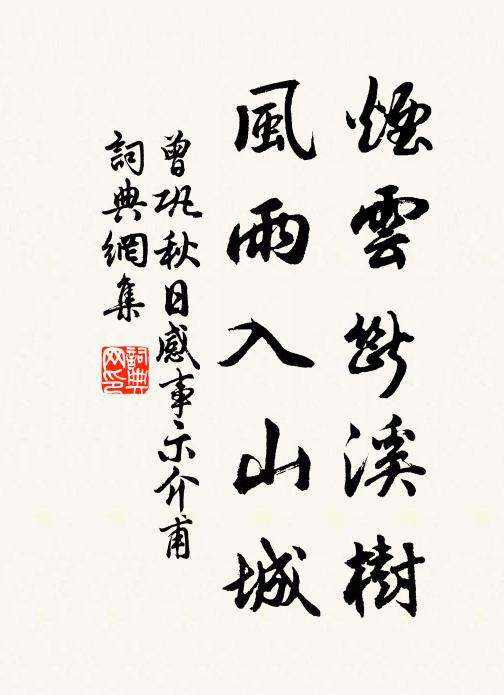 煙雲斷溪樹
風雨入山城
曾巩秋日感事示介甫
詞典網集
詞典网印